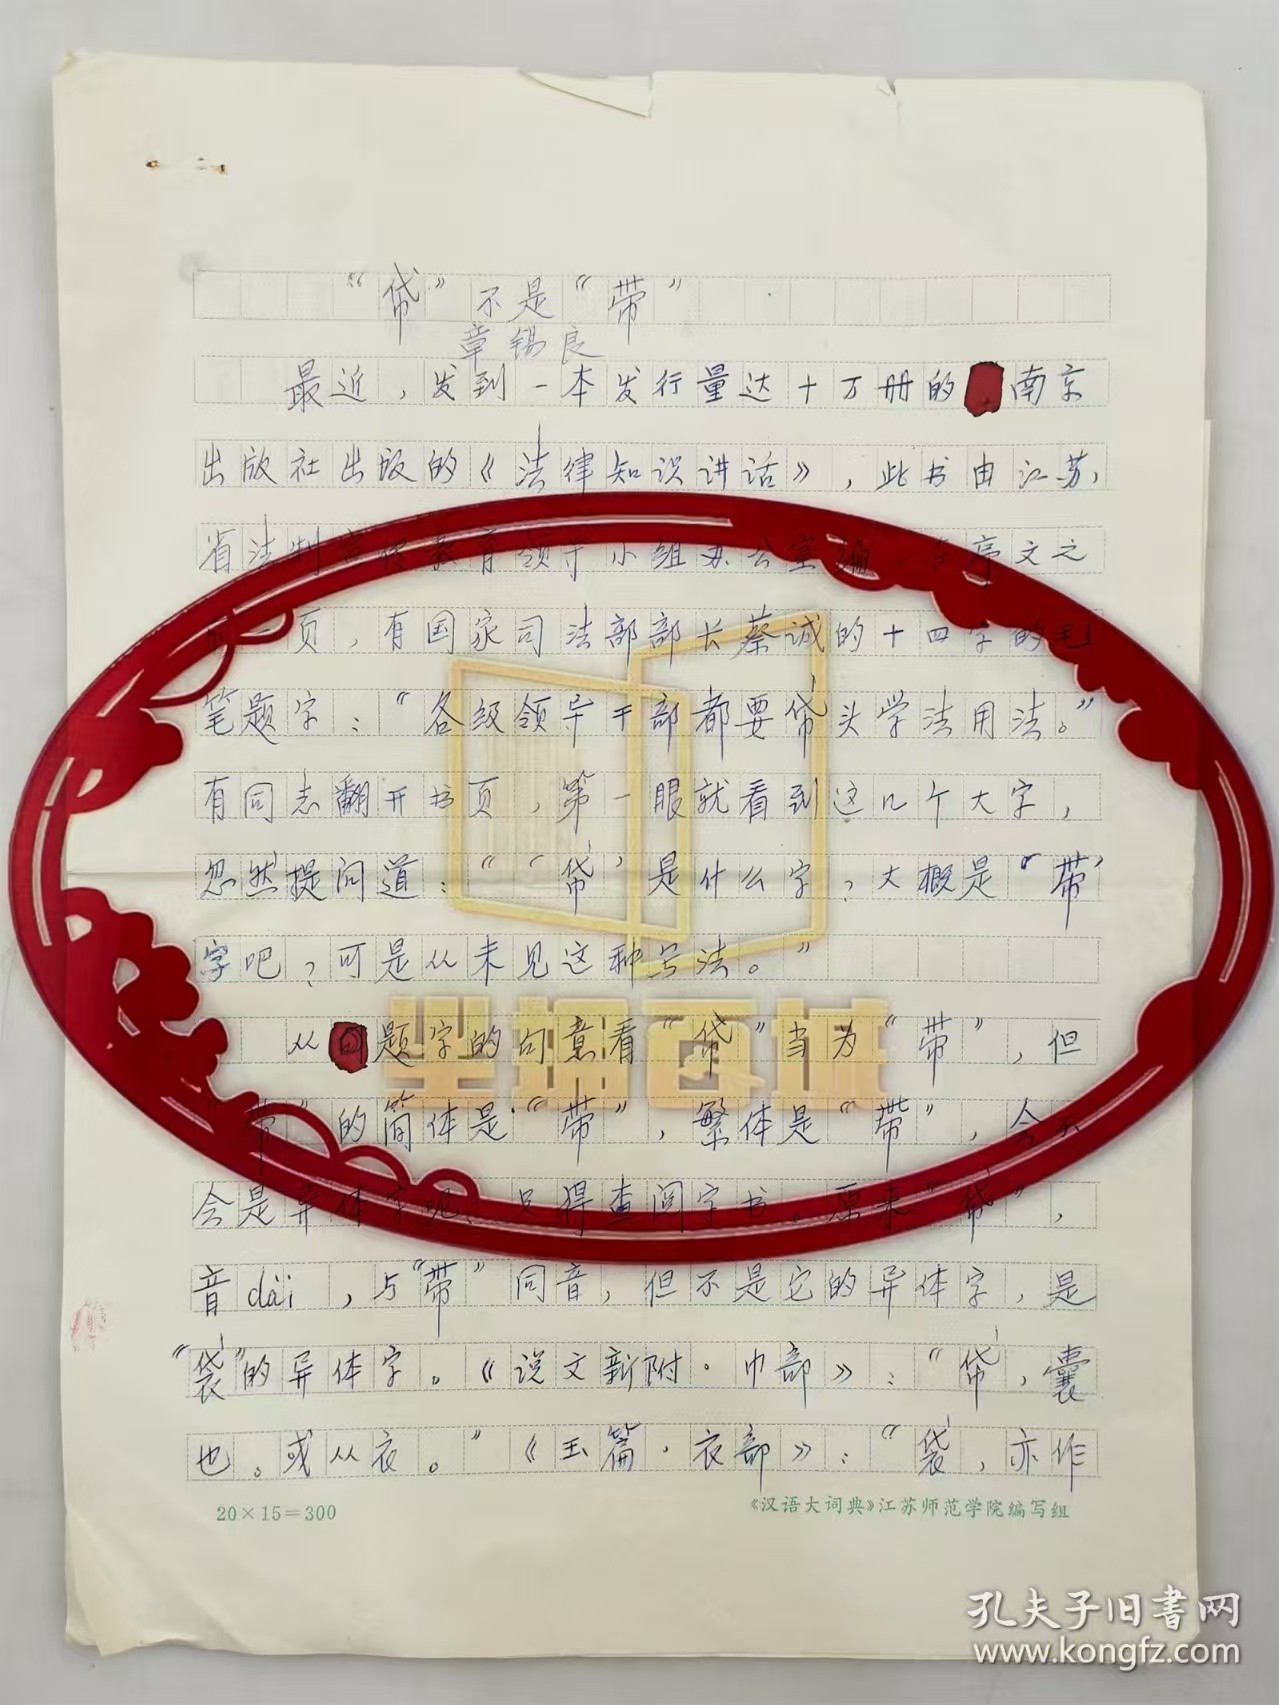 “帒”不是“带”
章锡良
最近，发到一本发行量达十万册的南京
出版社出版的《法律知识讲话》，此书由江苏
省法制宣传教育领导小组办公室编，在序文之
页，有国家司法部部长蔡诚的十四字的毛
笔题字：“各级领导干部都要帒头学法用法。”
有同志翻开书页，第一眼就看到这几个大字，
忽然提问道：“‘帒’是什么字，大概是‘带’
字吧，可是从来见这种写法。”
从题字的句意看“帒”当为“带”，但
“带”的简体是“带”，繁体是“帶”，会不
会是异体字呢？只得查阅字书，原来“帒”，
音dài，与“带”同音，但不是它的异体字，是
“袋”的异体字。《说文新附·巾部》：“帒，囊
也。或从衣。”《玉篇·衣部》：“袋，亦作
20×15=300
《汉语大词典》江苏师范学院编写组
孔夫子旧书网
www.kongfz.com